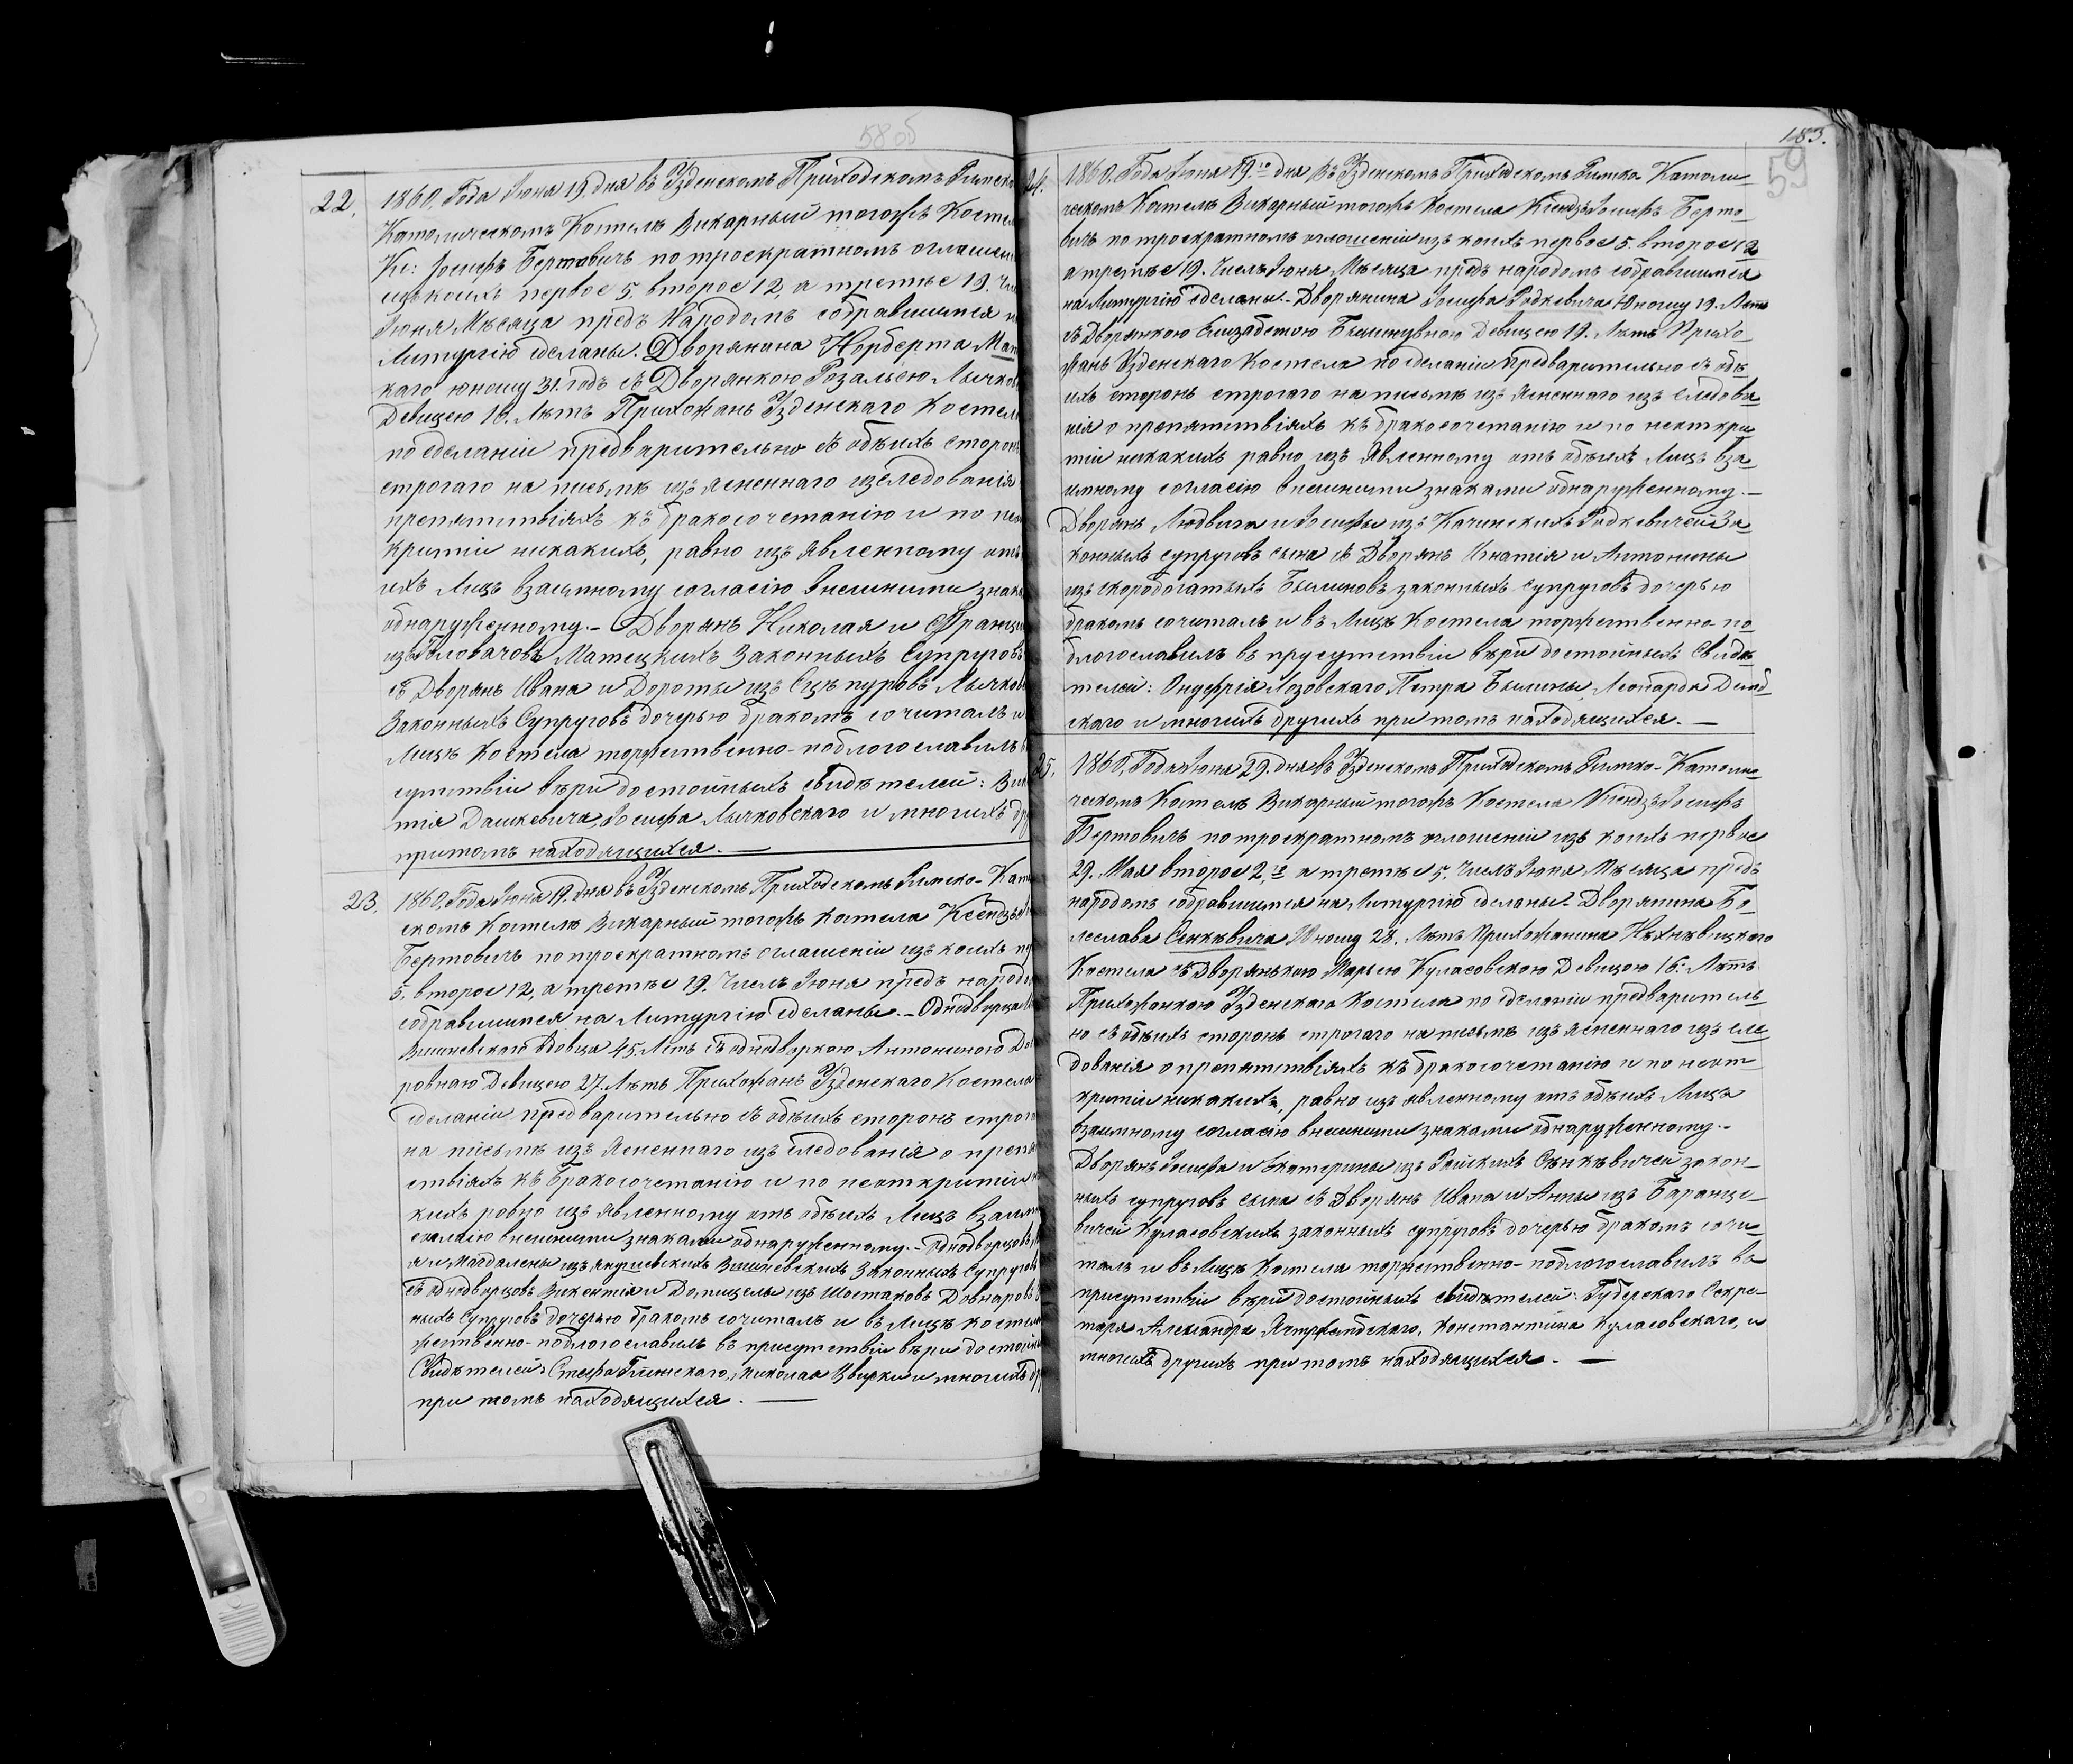 58 об
22.
1860. Года Июня 19. дня въ Узденскомъ Приходскомъ Римско
Католическомъ Костелѣ Викарный тогожъ Косте
Кс: Іосифъ Бертовичъ по троекратномъ оглашен
изъ коихъ первое 5, второе 12, а третье 19. Чи
Июня Мѣсяца предъ Народомъ собравшимся н
Литургію сделаны. Дворянина Норберта Мат
каго юношу 31. годъ съ Дворянкою Розаліею Лычков
Девицею 18. Лѣтъ Прихожанъ Узденскаго Костел
по сделаніи предварительно съ обѣихъ сторон
строгаго на письмѣ изъясненнаго изследованія
препятствіяхъ къ бракосочетанію и по не
критіи никакихъ, равно изъявленному отъ
ихъ Лицъ взаимному согласію внешними знак
обнаруженному. – Дворянъ Николая и Францы
изъ Головачовъ Матецкихъ Законныхъ Супруговъ
съ Дворянъ Ивана и Дороты изъ Лычков
Законныхъ Супруговъ дочерью бракомъ сочиталъ и
Лицѣ Костела торжественно поблогославилъ в
сутствіи вѣри достойныхъ свидѣтелей: Ви
тія Дашкевича, Іосифа Лычковскаго и многихъ др
притомъ находящихся. —
23.
1860. Года Июня 19. дня въ Узденскомъ Приходскомъ Римско-Кат
скомъ Костелѣ Викарный тогожъ Костела Ксендзъ
Бертовичъ по троекратномъ оглашеніи изъ коихъ п
5. второе 12, а третье 19. Числъ Июня предъ народо
собравшимся на Литургію сделаны. – Однодворца
Вишневского Вдовца 45. Лѣтъ съ однодворкою Антониною До
ровною Девицею 27. Лѣтъ Прихожанъ Узденскаго Костела
сделаніи предварительно съ обѣихъ сторонъ строга
на письмѣ изъясненнаго изъ следованія о преп
ствіяхъ къ Бракосочетанію и по неоткритіи
кихъ ровно изъявленному отъ обѣихъ Лицъ взаим
согласію внешними знаками обнаруженному. – Однодворцовъ
я и Магдалены изъ Вишневскихъ Законныхъ Супругов
съ однодворцовъ Викентія и Домицелы изъ Шостаковъ Довнаровъ
ныхъ Супруговъ дочерью бракомъ сочиталъ и въ Лицѣ косте
жественно поблогославилъ въ присутствіи вѣри достойн
Свидѣтелей: Николая и многихъ др
при томъ находящихся. —
183.
59
24.
1860. Года Июня 19.го дня Въ Узденскомъ Приходскомъ Римско Католи-
ческомъ Костелѣ Викарный тогожъ Костела Ксендзъ Іосифъ Берто-
вичъ по троекратномъ оглошеніи изъ коихъ первое 5. второе 12
а третье 19. Числъ Июня Мѣсяца предъ народомъ собравшимся
на Литургію сделаны. – Дворянина Іосифа Родкевича Юношу 19. Летъ
съ Дворянкою Елизабетою Былинувною Девицею 19. Лѣтъ Прихо-
жанъ Узденскаго Костела по сделаніи Предварительно съ обѣ-
ихъ сторонъ строгаго на письмѣ изъясненнаго изъ следова-
нія о препятствіяхъ къ бракосочетанію и по неоткри-
тіи никакихъ равно изъ Явленному отъ обѣихъ Лицъ вза-
имному согласію внешними знаками обнаруженному. –
Дворянъ Людвига и Іосифы изъ Качинскихъ Родкевичей За-
конныхъ супруговъ сына съ Дворянъ Игнатія и Антонины
изъ скоробогатыхъ Былиновъ законныхъ супруговъ дочерью
бракомъ сочиталъ и въ Лицѣ Костела торжественно по-
благославилъ въ присутствіи вѣри достойныхъ Свидѣ-
телей: Онуфрія Лозовскаго, Петра Былины, Леонарда
скаго и многихъ другихъ при томъ находящихся. —
25.
1860. Года Июня 29. дня въ Узденскомъ Приходскомъ Римско-Католи-
ческомъ Костелѣ Викарный тогожъ Костела Ксендзъ Іосифъ
Бертовичъ по троекратномъ оглошеніи изъ коихъ первое
29. Мая второе 2,е а третье 5. Числъ Июня Мѣсяца предъ
народомъ собравшимся на Литургію сделаны. – Дворянина Бо-
леслава Сенкѣвича Юношу 28. Лѣтъ Прихожанина Нѣхнѣвицкаго
Костела съ Дворянкою Марьею Куласовскою Девицою 16. Лѣтъ
Прихожанкою Узденскаго Костела по сделаніи предваритель-
но съ обѣихъ сторонъ строгаго на письмѣ изъясненнаго изъ сле-
дованія о препятствіяхъ къ бракосочетанію и по неот-
критіи никакихъ, равно изъявленному отъ обѣихъ Лицъ
взаимному согласію внешними знаками обнаруженному. –
Дворянъ Іосифа и Екатерины изъ Райскихъ Сѣнкѣвичей закон-
ныхъ супруговъ сына съ Дворянъ Ивана и Анны изъ Баранце-
вичей Куласовскихъ законныхъ супруговъ дочерью бракомъ сочи-
талъ и въ Лицѣ Костела торжественно поблогославилъ въ
присутствіи вѣри достойныхъ свидѣтелей: Губерскаго Секре-
таря Александра Ястржембскаго, Константина Куласовскаго, и
многихъ другихъ при томъ находящихся. —